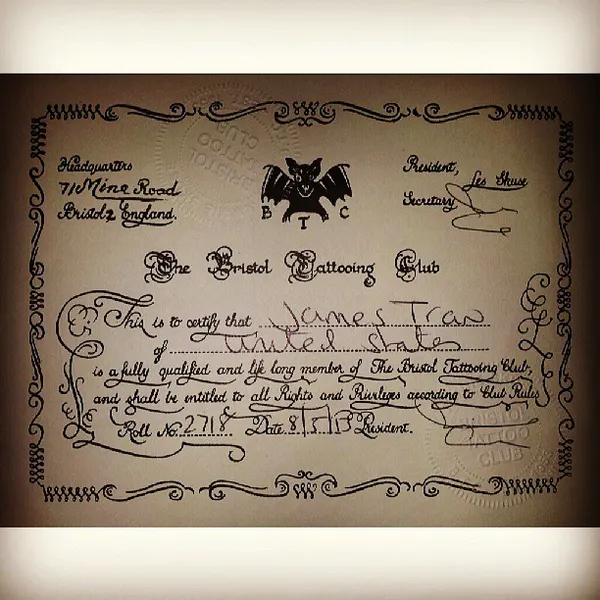 Headquarters
71 Mina Road
Bristol 2 England.
B T C
President, Les Skuse
Secretary
The Bristol Tattooing Club
This is to certify that James Tran
of United States
is a fully qualified and life long member of The Bristol Tattooing Club,
and shall be entitled to all Rights and Privileges according to Club Rules
Roll No. 2718 Date 8/5/13 President.
BRISTOL
TATTOO
CLUB
BRISTOL
TATTOO
CLUB